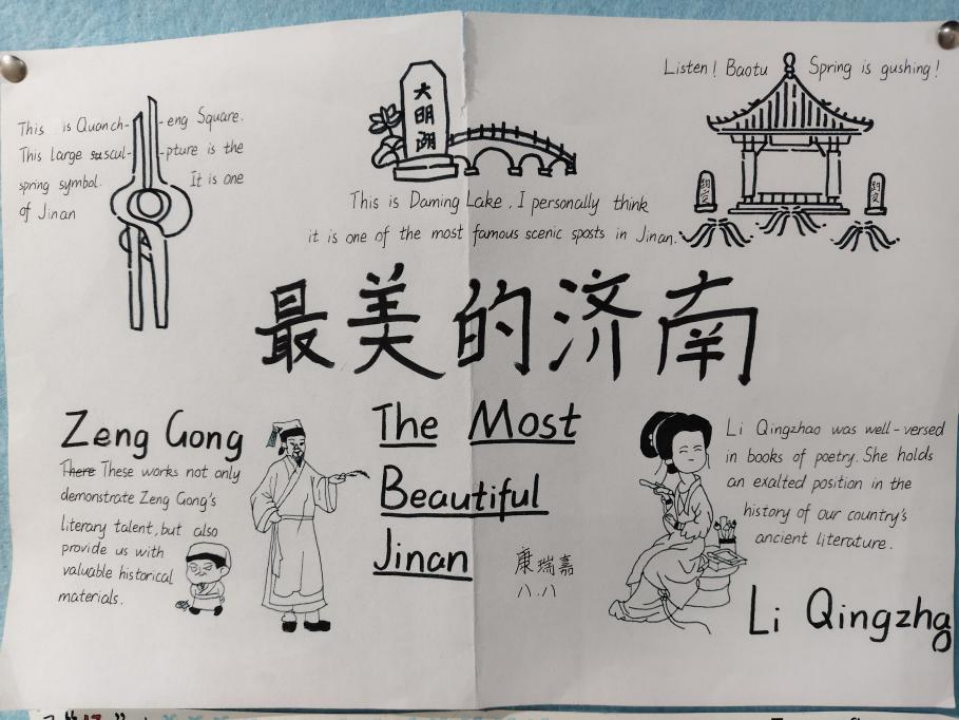 This is Quanch-eng Square.
This large suscul-pture is the
spring symbol. It is one
of Jinan
大明湖
This is Daming Lake. I personally think
it is one of the most famous scenic sposts in Jinan.
Listen! Baotu Spring is gushing!
最美的济南
Zeng Gong
There These works not only
demonstrate Zeng Gong's
literary talent, but also
provide us with
valuable historical
materials.
The Most
Beautiful
Jinan
康瑞嘉
八.八
Li Qingzhao was well-versed
in books of poetry. She holds
an exalted position in the
history of our country's
ancient literature.
Li Qingzhao